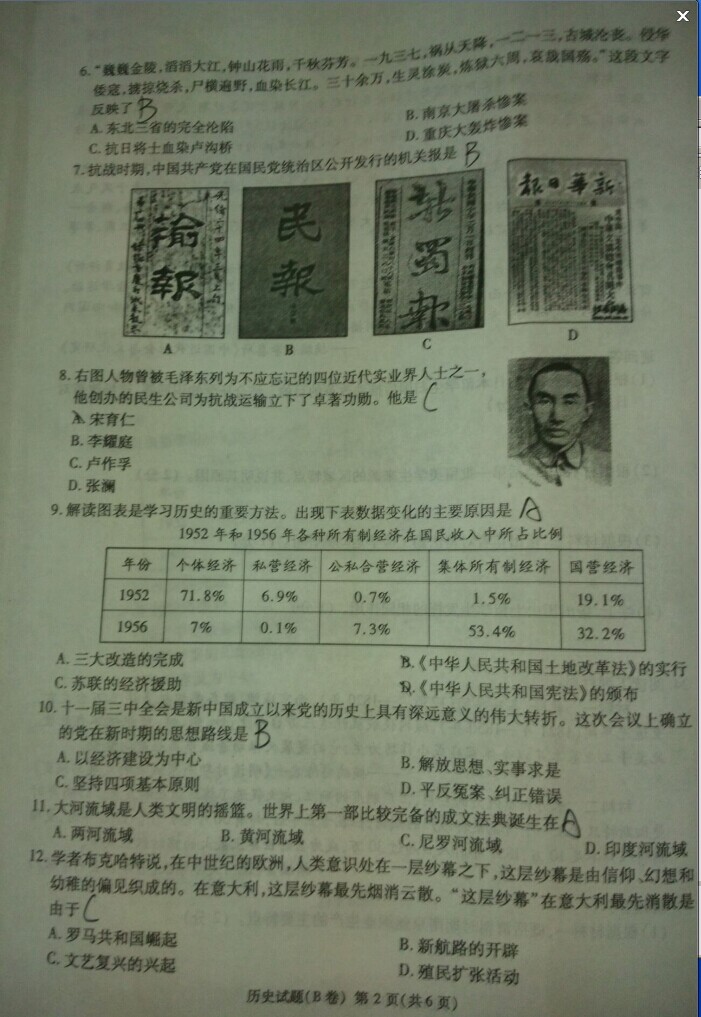 6.“巍巍金陵，滔滔大江，钟山花雨，千秋芬芳。一九三七，祸从天降，一二一三，古城沦丧。侵华
倭寇，掳掠烧杀，尸横遍野，血染长江。三十余万，生灵涂炭，炼狱六周，哀哉国殇。”这段文字
反映了 B
A.东北三省的完全沦陷
B.南京大屠杀惨案
C.抗日将士血染卢沟桥
D.重庆大轰炸惨案
7.抗战时期，中国共产党在国民党统治区公开发行的机关报是 B
民報
新蜀报
新華日報
A
B
C
D
8.右图人物曾被毛泽东列为不应忘记的四位近代实业界人士之一，
他创办的民生公司为抗战运输立下了卓著功勋。他是 C
A.宋育仁
B.李耀庭
C.卢作孚
D.张澜
9.解读图表是学习历史的重要方法。出现下表数据变化的主要原因是 A
1952年和1956年各种所有制经济在国民收入中所占比例
年份 个体经济 私营经济 公私合营经济 集体所有制经济 国营经济
1952 71.8% 6.9% 0.7% 1.5% 19.1%
1956 7% 0.1% 7.3% 53.4% 32.2%
A.三大改造的完成
B.《中华人民共和国土地改革法》的实行
C.苏联的经济援助
D.《中华人民共和国宪法》的颁布
10.十一届三中全会是新中国成立以来党的历史上具有深远意义的伟大转折。这次会议上确立
的党在新时期的思想路线是 B
A.以经济建设为中心
B.解放思想、实事求是
C.坚持四项基本原则
D.平反冤案、纠正错误
11.大河流域是人类文明的摇篮。世界上第一部比较完备的成文法典诞生在 A
A.两河流域 B.黄河流域 C.尼罗河流域 D.印度河流域
12.学者布克哈特说，在中世纪的欧洲，人类意识处在一层纱幕之下，这层纱幕是由信仰、幻想和
幼稚的偏见织成的。在意大利，这层纱幕最先烟消云散。“这层纱幕”在意大利最先消散是
由于 C
A.罗马共和国崛起
B.新航路的开辟
C.文艺复兴的兴起
D.殖民扩张活动
历史试题(B卷) 第2页(共6页)